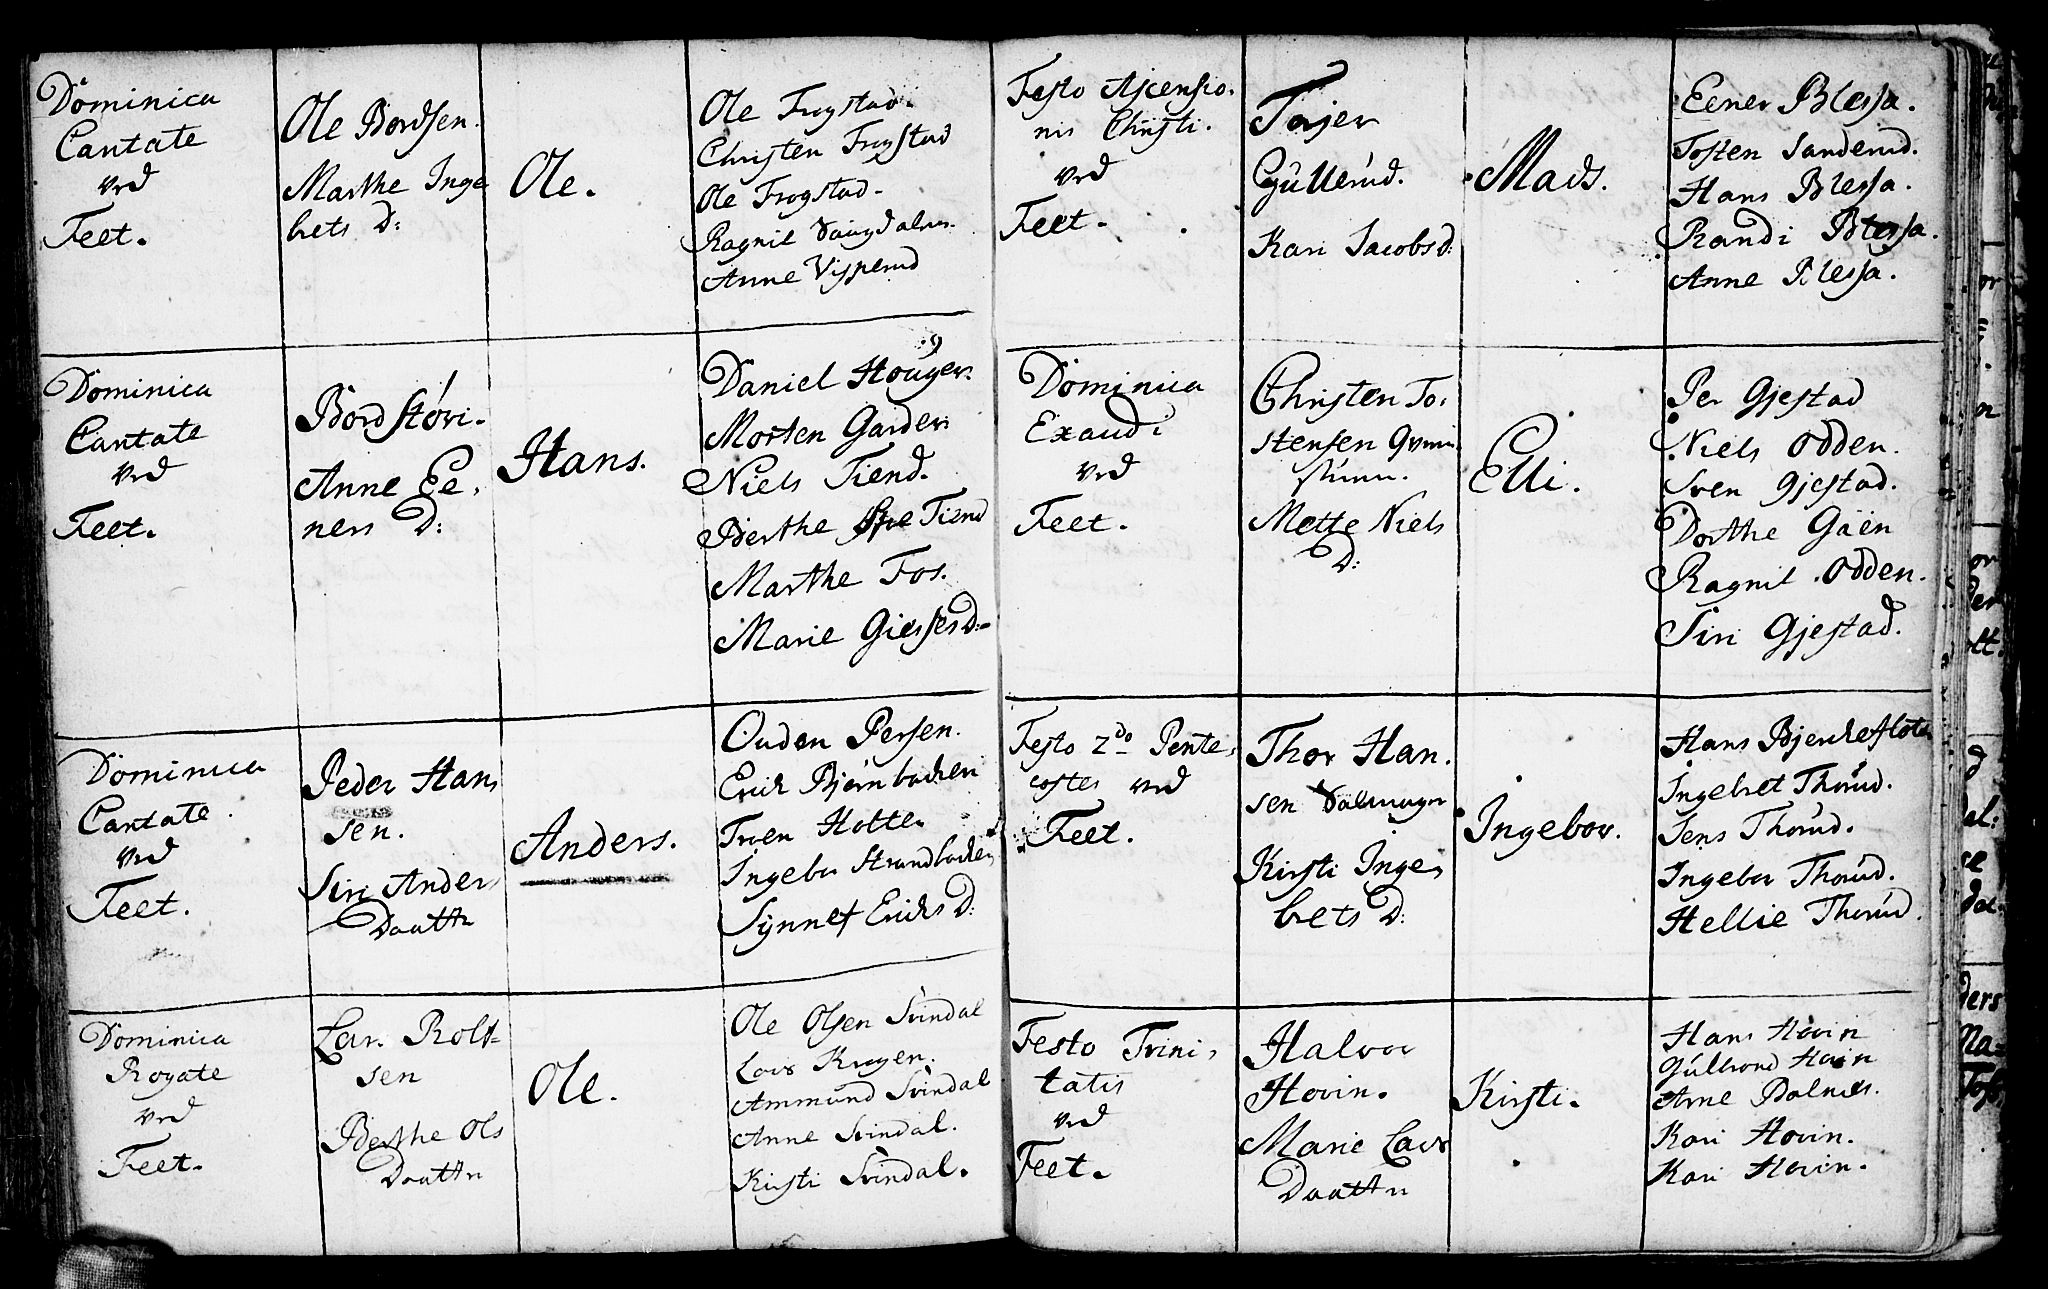 Dominica
Cantate
ved
Feet.
Ole Bordsen.
Marthe Inge
bets D:
Ole.
Ole Frogstad.
Christen Frogstad
Ole Frogstad.
Ragnil
Anne Visperud
Dominica
Cantate
ved
Feet.
Bord Støvi.
Anne Ee,
ners D:
Hans.
Daniel Houger.
Morten Garder
Niels Tiend.
Berthe Tiend
Marthe Fos.
Marie Giesses D:
Dominica
Cantate
ved
Feet.
Peder Hans
sen.
Siri Anders
Daatter
Anders.
Ouden Persen.
Erich Bjørnbachen
Troen Holte
Ingebor Strandbachen
Synnet Erichs D:
Dominica
Rogate
ved
Feet.
Lars Rolf-
sen
Berthe Ols
Daatter
Ole.
Ole Olsen Svindal
Lars Krogen.
Ammund Svindal
Anne Svindal.
Kirsti Svindal.
Festo Ascensio.
nis Christi.
ved
Feet.
Torjer
Gullerud.
Kari Jacobsd:
Mads.
Eener Blessa.
Tosten Sanderud.
Hans Blessa.
Randi Blessa.
Anne Blessa.
Dominica
Exaudi
ved
Feet.
Christen To,
stensen
Mette Niels
D:
Elli.
Per Gjestad
Niels Odden.
Sven Gjestad.
Dorthe Gaën
Ragnil Odden.
Siri Gjestad.
Festo 2do Pente,
costes ved
Feet.
Thor Han.
sen
Kirsti Inge,
brets D:
Ingebor.
Hans Bjerchefloten
Ingebret Thorud.
Jens Thorud.
Ingebor Thorud.
Hellie Thorud.
Festo Trini,
tatis
ved
Feet.
Halvor
Hovin.
Marie Lars
Daatter
Kirsti.
Hans Hovin
Gulbrand Hovin
Arne Dolnæs.
Kari Hovin.
Kari Hovin.